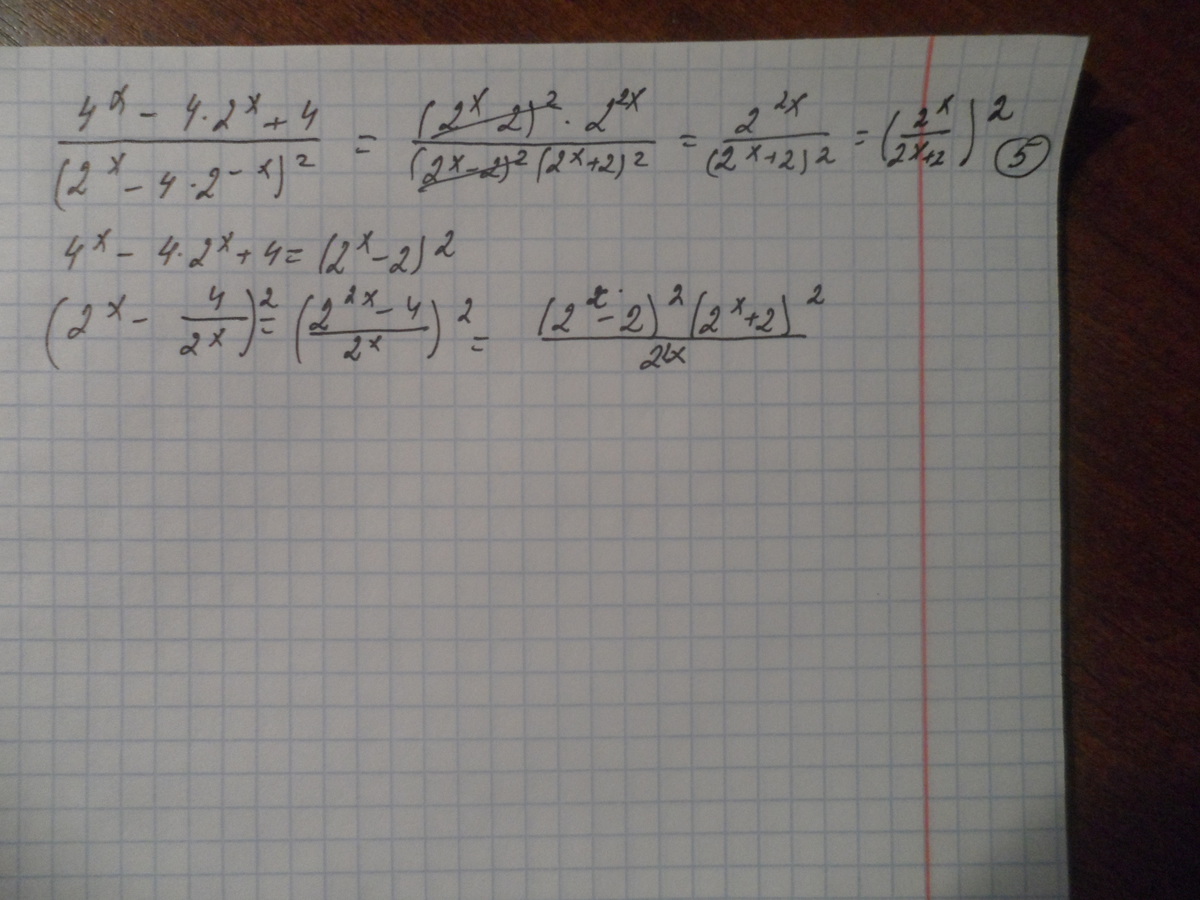 \frac{4^x - 4 \cdot 2^x + 4}{(2^x - 4 \cdot 2^{-x})^2} = \frac{(2^x - 2)^2 \cdot 2^{2x}}{(2^x - 2)^2 (2^x + 2)^2} = \frac{2^{2x}}{(2^x + 2)^2} = \left(\frac{2^x}{2^x + 2}\right)^2 ⑤
4^x - 4 \cdot 2^x + 4 = (2^x - 2)^2
\left(2^x - \frac{4}{2^x}\right)^2 = \left(\frac{2^{2x} - 4}{2^x}\right)^2 = \frac{(2^x - 2)^2 (2^x + 2)^2}{2^{2x}}